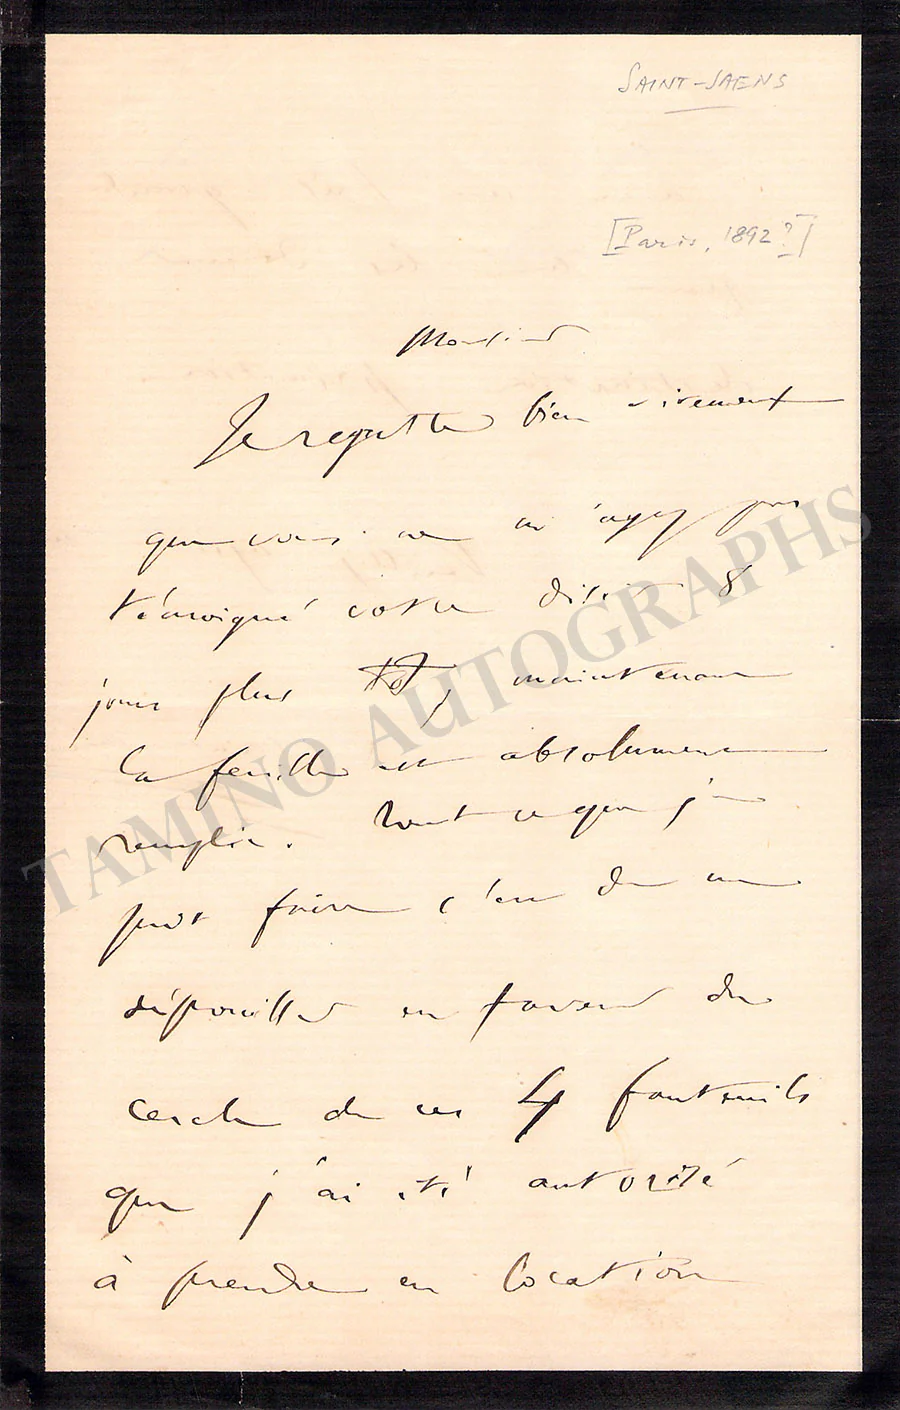 SAINT-SAENS
[Paris, 1892?]
Monsieur
Je regrette bien vivement
que vous ne m'ayez pas
témoigné votre désir 8
jours plus tôt, maintenant
la feuille est absolument
remplie. Tout ce que je
puis faire c'est de me
dépouiller en faveur du
cercle de ces 4 fauteuils
que j'ai été autorisé
à prendre en location
TAMINO AUTOGRAPHS